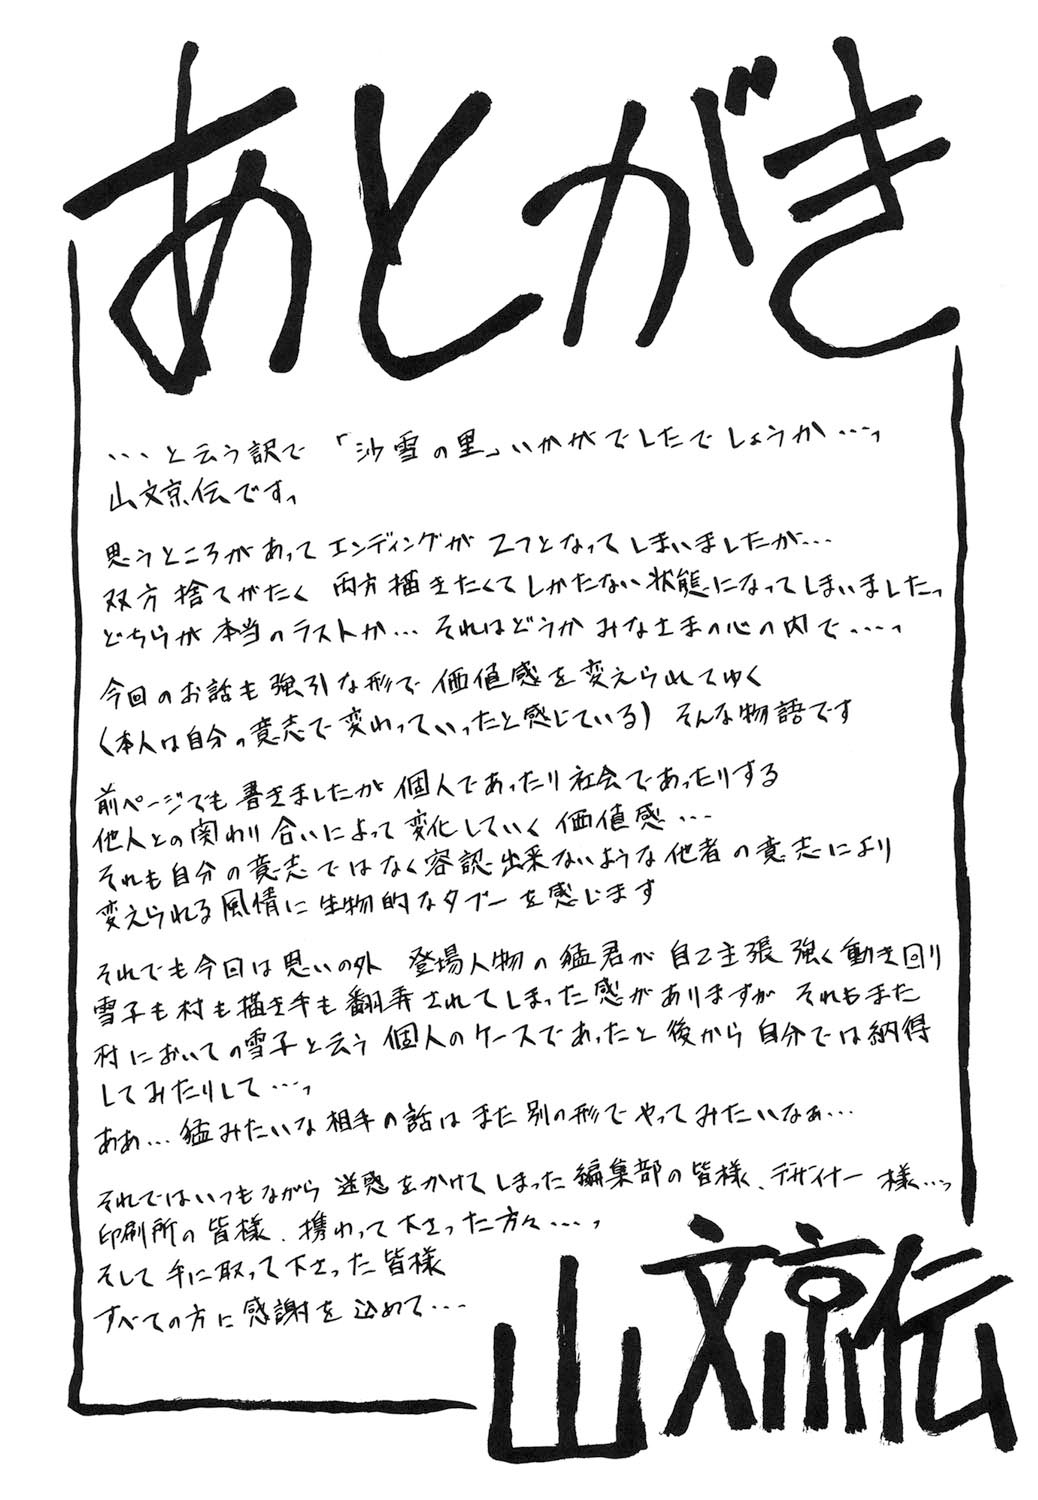 あとがき
・・・と云う訳で「沙雪の里」いかがでしたでしょうか・・・。
山文京伝です。
思うところがあってエンディングが2つとなってしまいましたが・・・
双方捨てがたく 両方描きたくてしかたない状態になってしまいました。
どちらが本当のラストか・・・それはどうかみなさまの心の内で・・・・。
今回のお話も強引な形で価値感を変えられてゆく
(本人は自分の意志で変わっていったと感じている) そんな物語です
前ページでも書きましたが個人であったり社会であったりする
他人との関わり合いによって変化していく価値感・・・
それも自分の意志ではなく容認出来ないような他者の意志により
変えられる風情に生物的なタブーを感じます
それでも今回は思いの外 登場人物の猛君が自己主張強く動き回り
雪子も村も描き手も翻弄されてしまった感がありますが それもまた
村においての雪子と云う個人のケースであったと後から自分では納得
してみたりして・・・。
ああ・・・猛みたいな相手の話はまた別の形でやってみたいなぁ・・・
それではいつもながら迷惑をかけてしまった編集部の皆様、デザイナー様・・・。
印刷所の皆様、携わって下さった方々・・・・。
そして手に取って下さった皆様
すべての方に感謝を込めて・・・
山文京伝